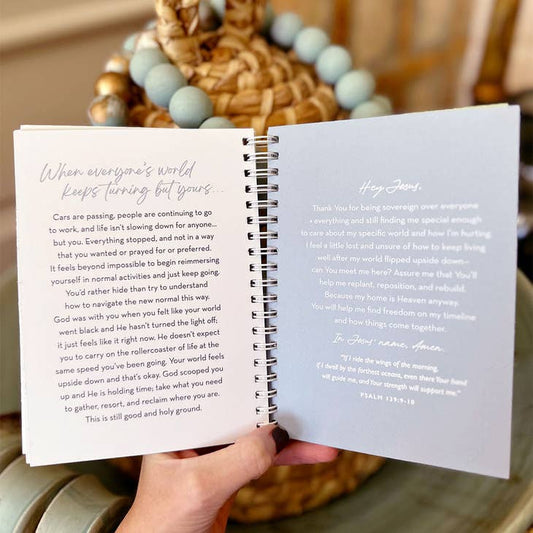 When everyone's world
keeps turning but yours...
Cars are passing, people are continuing to go
to work, and life isn't slowing down for anyone...
but you. Everything stopped, and not in a way
that you wanted or prayed for or preferred.
It feels beyond impossible to begin reimmersing
yourself in normal activities and just keep going.
You'd rather hide than try to understand
how to navigate the new normal this way.
God was with you when you felt like your world
went black and He hasn't turned the light off;
it just feels like it right now. He doesn't expect
you to carry on the rollercoaster of life at the
same speed you've been going. Your world feels
upside down and that's okay. God scooped you
up and He is holding time; take what you need
to gather, resort, and reclaim where you are.
This is still good and holy ground.
Hey Jesus,
Thank You for being sovereign over everyone
+ everything and still finding me special enough
to care about my specific world and how I'm hurting.
I feel a little lost and unsure of how to keep living
well after my world flipped upside down–
can You meet me here? Assure me that You'll
help me replant, reposition, and rebuild.
Because my home is Heaven anyway.
You will help me find freedom on my timeline
and how things come together.
In Jesus' name, Amen.
"If I ride the wings of the morning,
if I dwell by the farthest oceans, even there Your hand
will guide me, and Your strength will support me."
PSALM 139:9-10